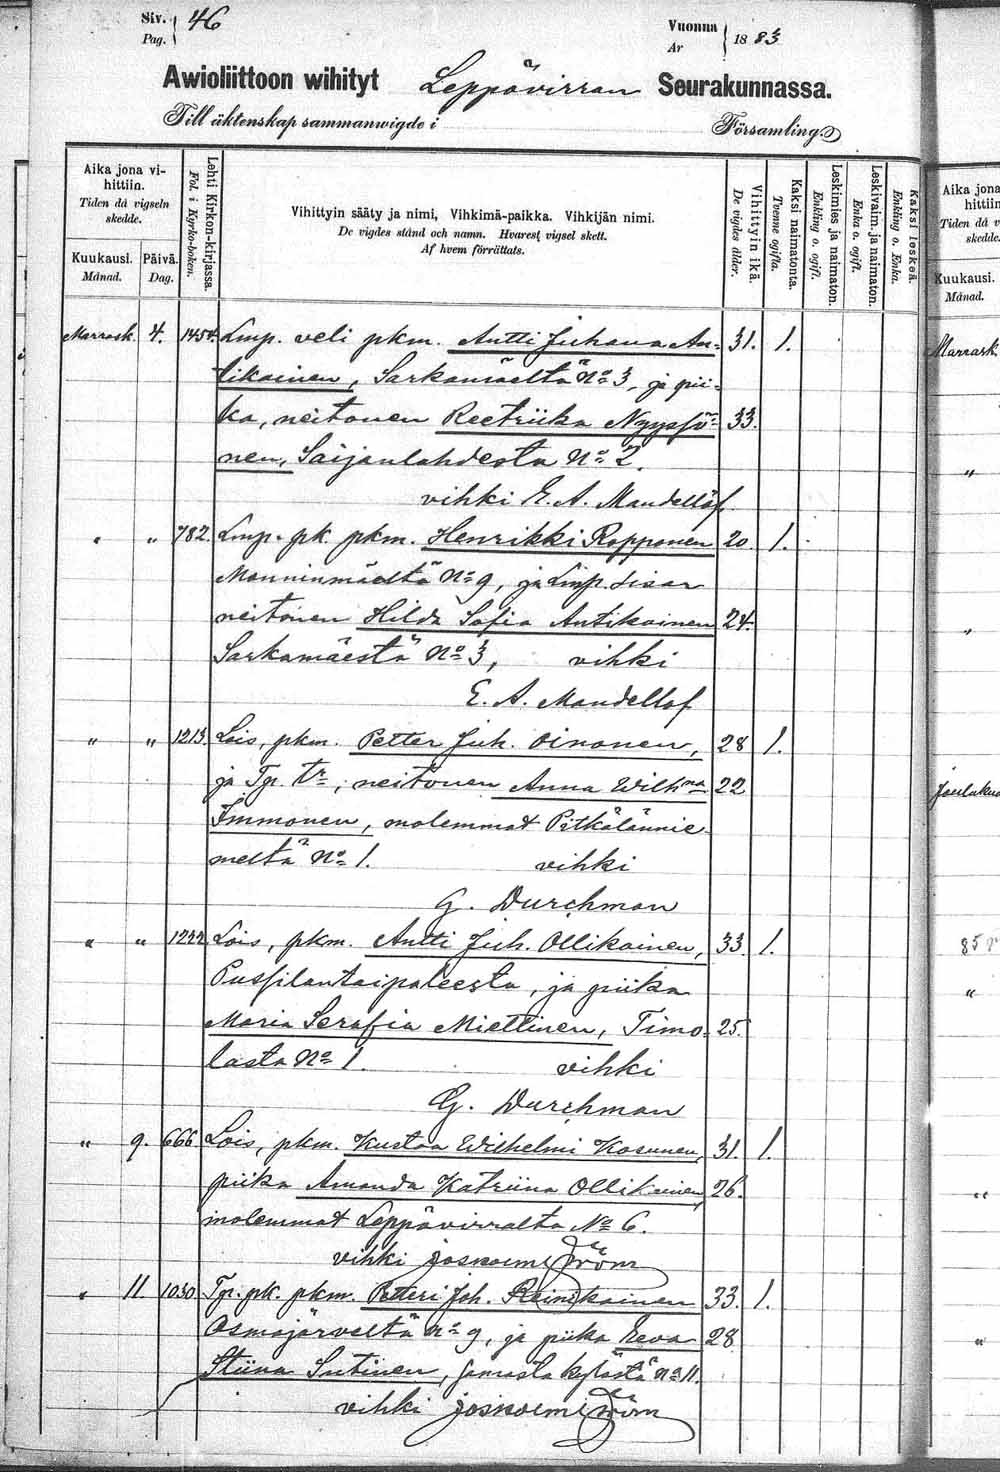 Siv. 46
Pag.
Vuonna
År 1883
Awioliittoon wihityt Leppävirran Seurakunnassa.
Till äktenskap sammanwigde i Församling
Aika jona vihittiin.
Tiden då vigseln skedde.
Kuukausi.
Månad.
Päivä.
Dag.
Lehti Kirkon-kirjassa.
Fol. i Kyrko-boken.
Vihittyin sääty ja nimi, Vihkimä-paikka. Vihkijän nimi.
De vigdes stånd och namn. Hvarest vigsel skett.
Af hvem förrättats.
Vihittyin ikä.
De vigdes ålder.
Kaksi naimatonta.
Tvenne ogifta.
Leskimies ja naimaton.
Enkling o. ogift.
Leskivaim. ja naimaton.
Enka o. ogift.
Kaksi leskeä.
Enkling o. Enka.
Marrask. 4. 1454. Lmp. veli pkm. Antti Juhana An- 31. 1.
tikainen, Sarkamäeltä No 3, ja pii-
ka, neitonen Reetriika Nyyssö- 33.
nen, Saijanlahdesta No 2.
vihki E. A. Mandellöf
" " 782. Lmp. pk. pkm. Henrikki Ropponen 20. 1.
Manninmäeltä No 9, ja Lmp. sisar
neitonen Hilda Sofia Antikainen 24.
Sarkamäestä No 3, vihki
E. A. Mandellof
" " 1213. Lois, pkm. Petter Juh. Oinonen, 28 1.
ja Tp. tr, neitonen Anna Wilhna 22
Immonen, molemmat Pitkälännie-
meltä No 1. vihki
G. Durchman
" " 1222. Lois, pkm. Antti Juh. Ollikainen, 33. 1.
Pussilantaipaleesta, ja piika
Maria Serafia Miettinen, Timo- 25.
lasta No 1. vihki
G. Durchman
" 9. 666. Lois, pkm. Kustaa Wilhelmi Kosunen, 31. 1.
piika Amanda Katriina Ollikainen 26.
molemmat Leppävirralta No 6.
vihki
" 11. 1030. Tp. pk. pkm. Petteri Joh. Reinikainen 33. 1.
Osmajärveltä No 9, ja piika Eeva 28
Stiina Sutinen, samasta kylästä No 11.
vihki
Aika jona
hittiin
Tiden då v
skedde.
Kuukausi.
Månad.
Marrask.
"
"
Jouluku
"
"
"